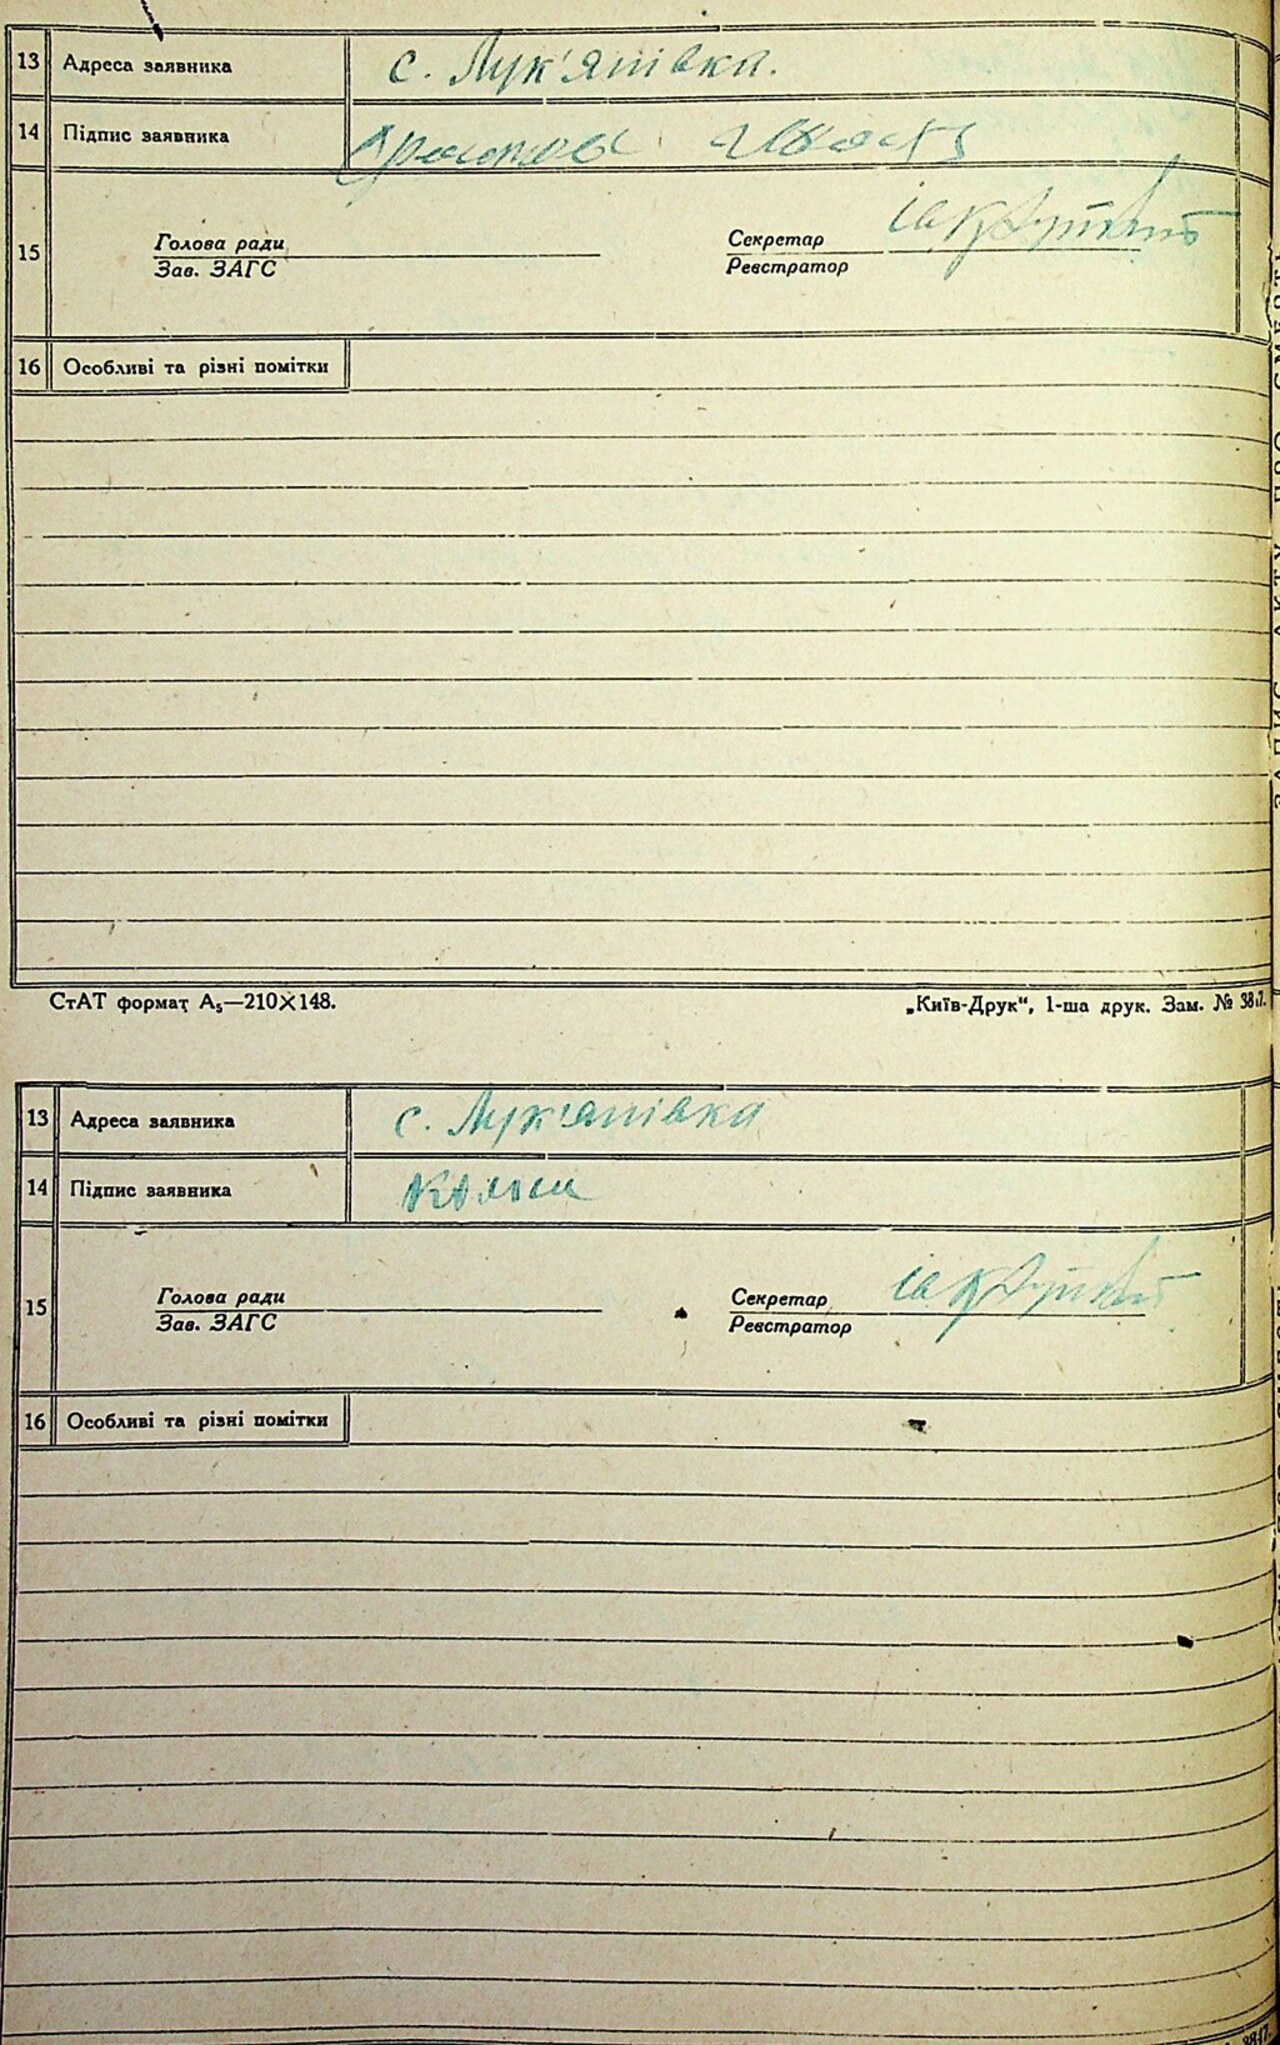 13 Адреса заявника с. Лук'янівка.
14 Підпис заявника
15 Голова ради Секретар
Зав. ЗАГС Реєстратор
16 Особливі та різні помітки
СтАТ формат А₅—210×148. „Київ-Друк“, 1-ша друк. Зам. №
13 Адреса заявника с. Лук'янівка
14 Підпис заявника
15 Голова ради Секретар
Зав. ЗАГС Реєстратор
16 Особливі та різні помітки
ЗАПИС АКТУ ПРО СМЕРТЬ